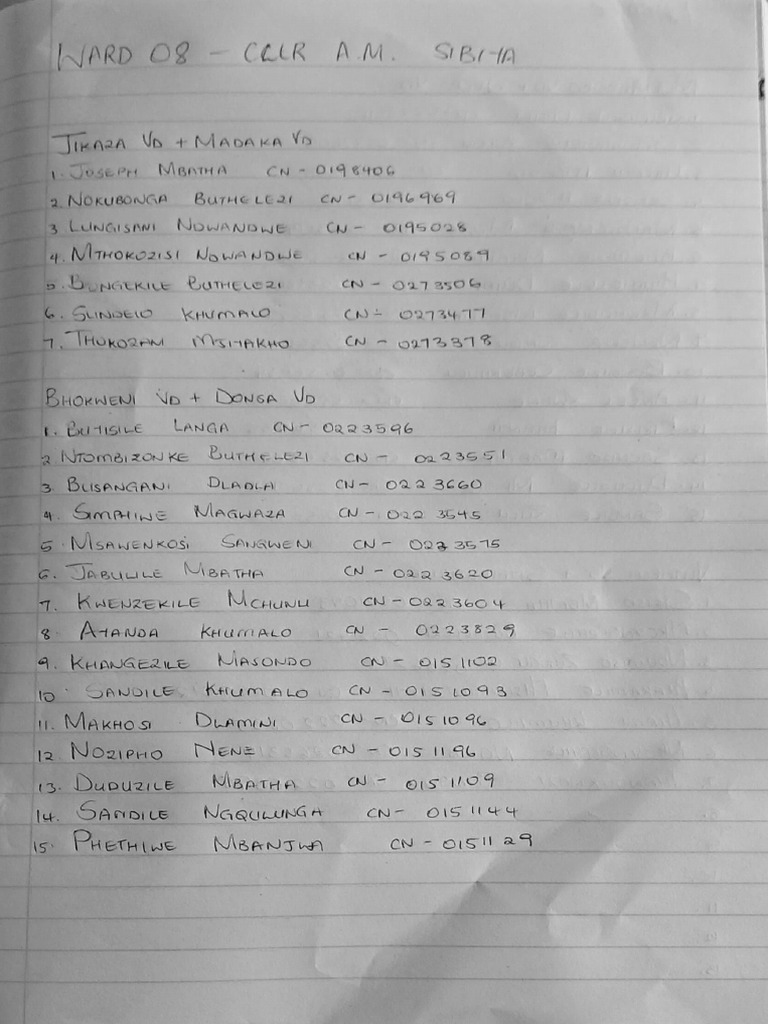 WARD 08 - CLLR A.M. SIBIYA
JIKAZA VD + MADAKA VD
1. JOSEPH MBATHA CN - 0198406
2. NOKUBONGA BUTHELEZI CN - 0196969
3. LUNGISANI NDWANDWE CN - 0195028
4. MTHOKOZISI NDWANDWE CN - 0195089
5. BONGEKILE BUTHELEZI CN - 0273506
6. SLINDELO KHUMALO CN - 0273477
7. THOKOZANI MSIYAKHO CN - 0273378
BHOKWENI VD + DONGA VD
1. BUTISILE LANGA CN - 0223596
2. NTOMBIZONKE BUTHELEZI CN - 0223551
3. BUSANGANI DLADLA CN - 0223660
4. SIMPHIWE MAGWAZA CN - 0223545
5. MSAWENKOSI SANGWENI CN - 0223575
6. JABULILE MBATHA CN - 0223620
7. KWENZEKILE MCHUNU CN - 0223604
8. AYANDA KHUMALO CN - 0223829
9. KHANGEZILE MASONDO CN - 0151102
10. SANDILE KHUMALO CN - 0151093
11. MAKHOSI DLAMINI CN - 0151096
12. NOZIPHO NENE CN - 0151196
13. DUDUZILE MBATHA CN - 0151109
14. SANDILE NGQULUNGA CN - 0151144
15. PHETHIWE MBANJWA CN - 0151129